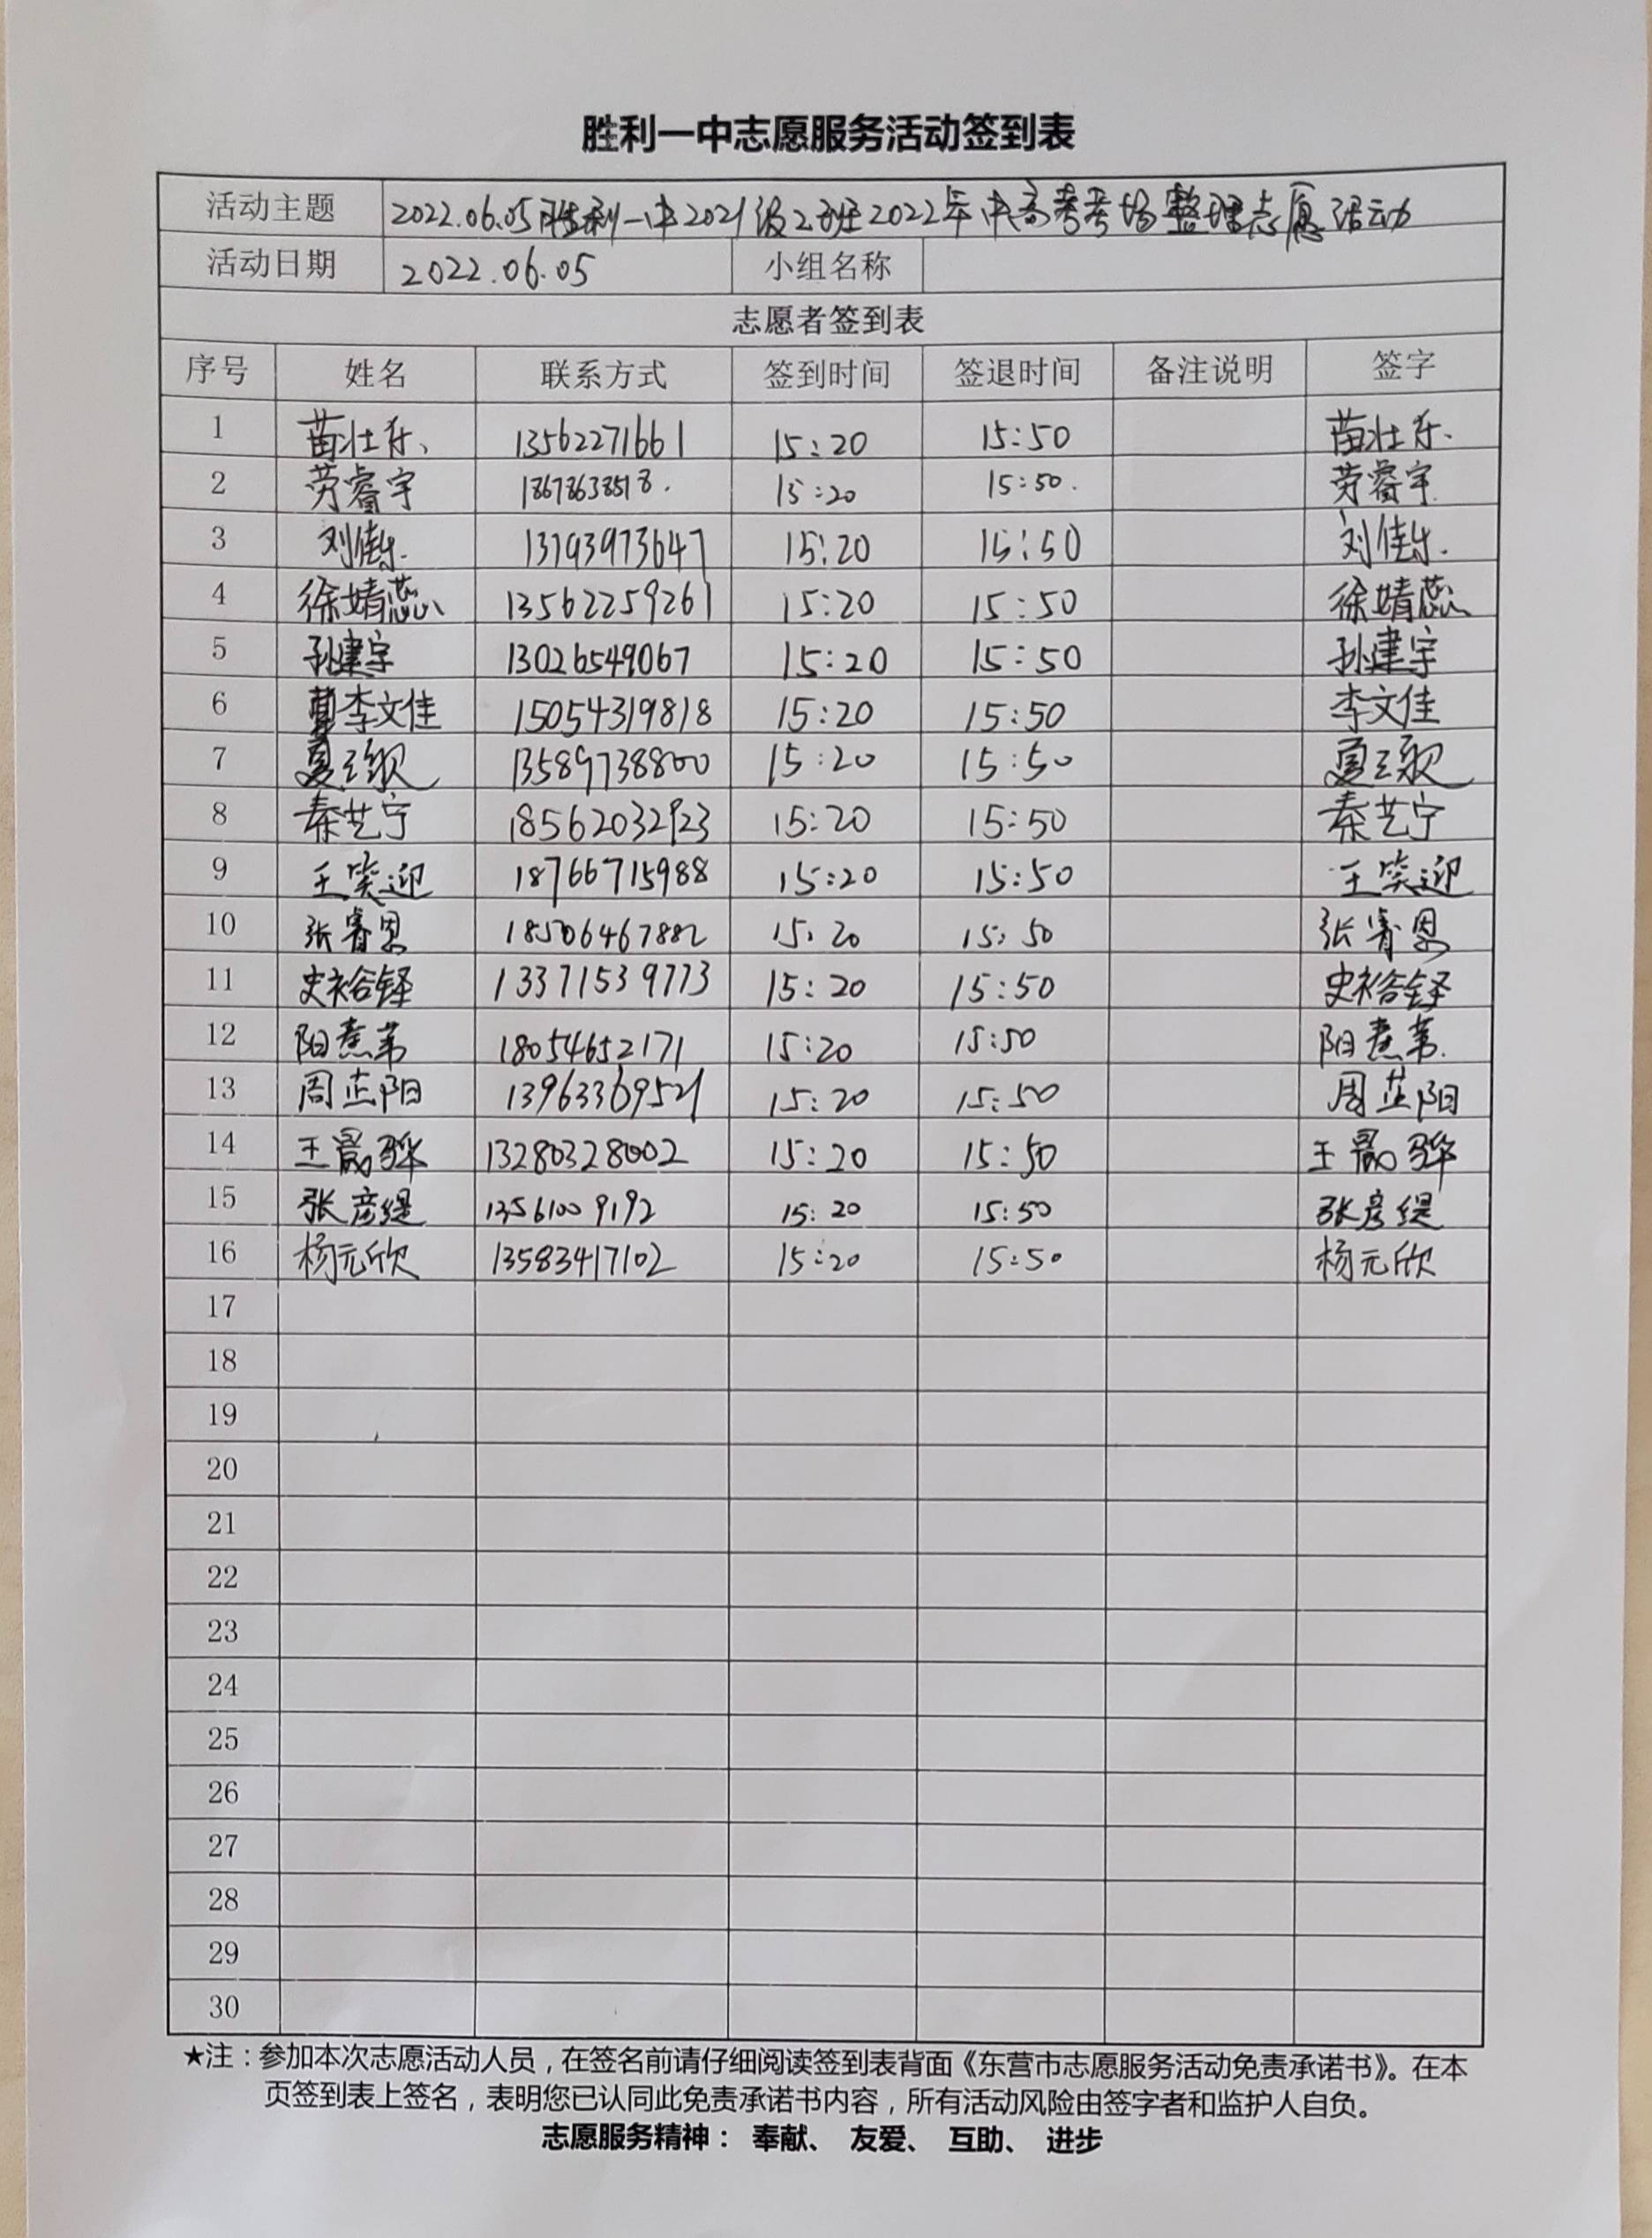 胜利一中志愿服务活动签到表
活动主题 2022.06.05胜利一中2021级2班2022年中高考考场整理志愿活动
活动日期 2022.06.05 小组名称
志愿者签到表
序号 姓名 联系方式 签到时间 签退时间 备注说明 签字
1 苗壮乐 13562271661 15:20 15:50 苗壮乐
2 劳睿宇 18678638518. 15:20 15:50. 劳睿宇
3 刘佳乐. 13793973647 15:20 15:50 刘佳乐.
4 徐婧蕊 13562259261 15:20 15:50 徐婧蕊
5 孙建宇 13026549067 15:20 15:50 孙建宇
6 李文佳 15054319818 15:20 15:50 李文佳
7 夏 13589738800 15:20 15:50 夏
8 秦艺宁 18562032923 15:20 15:50 秦艺宁
9 王笑迎 18766715988 15:20 15:50 王笑迎
10 张睿恩 18506467882 15:20 15:50 张睿恩
11 史裕铎 13371539773 15:20 15:50 史裕铎
12 阳 18054652171 15:20 15:50 阳
13 周芷阳 13963369521 15:20 15:50 周芷阳
14 王晸骅 13280328002 15:20 15:50 王晸骅
15 张彦缇 13561009192 15:20 15:50 张彦缇
16 杨元欣 13583417102 15:20 15:50 杨元欣
17
18
19
20
21
22
23
24
25
26
27
28
29
30
★注：参加本次志愿活动人员，在签名前请仔细阅读签到表背面《东营市志愿服务活动免责承诺书》。在本
页签到表上签名，表明您已认同此免责承诺书内容，所有活动风险由签字者和监护人自负。
志愿服务精神： 奉献、 友爱、 互助、 进步